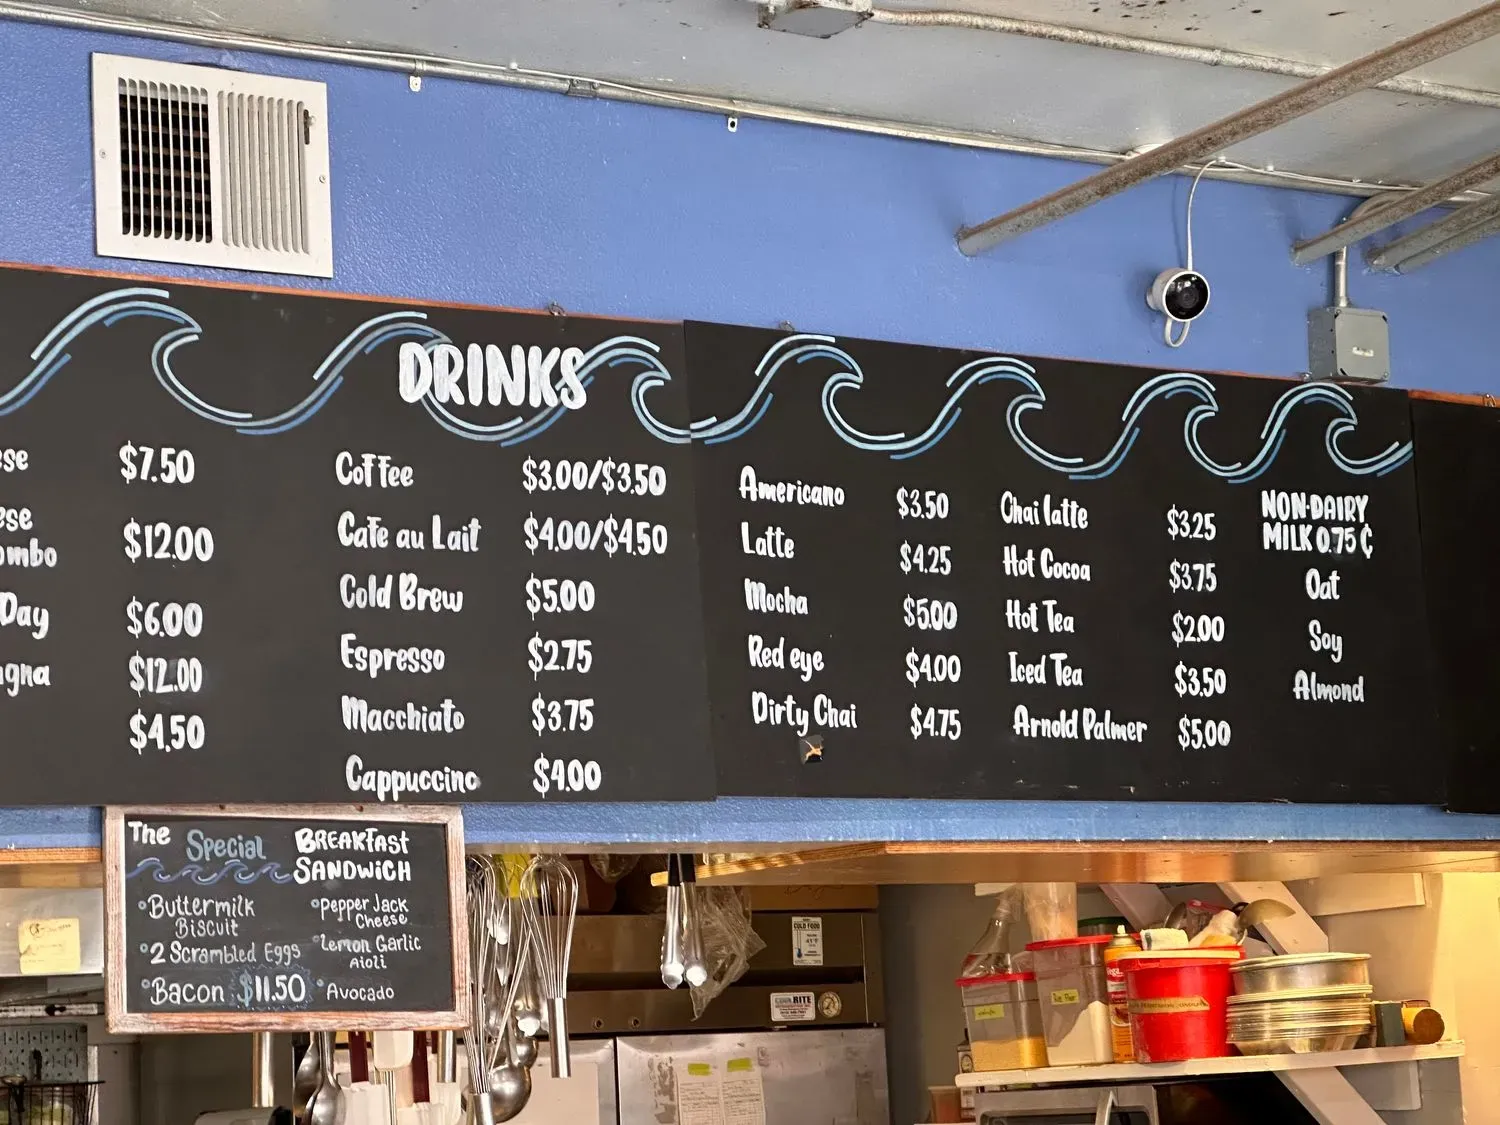 DRINKS
$7.50
$12.00
ombo
Day $6.00
$12.00
$4.50
Coffee $3.00/$3.50
Cafe au Lait $4.00/$4.50
Cold Brew $5.00
Espresso $2.75
Macchiato $3.75
Cappuccino $4.00
Americano $3.50
Latte $4.25
Mocha $5.00
Red eye $4.00
Dirty Chai $4.75
Chai latte $3.25
Hot Cocoa $3.75
Hot Tea $2.00
Iced Tea $3.50
Arnold Palmer $5.00
NON-DAIRY
MILK 0.75 ¢
Oat
Soy
Almond
The Special BREAKFAST
SANDWICH
Buttermilk
Biscuit
2 Scrambled Eggs
Bacon $11.50
Pepper Jack
Cheese
Lemon Garlic
Aioli
Avocado
COLD FOOD
41°F